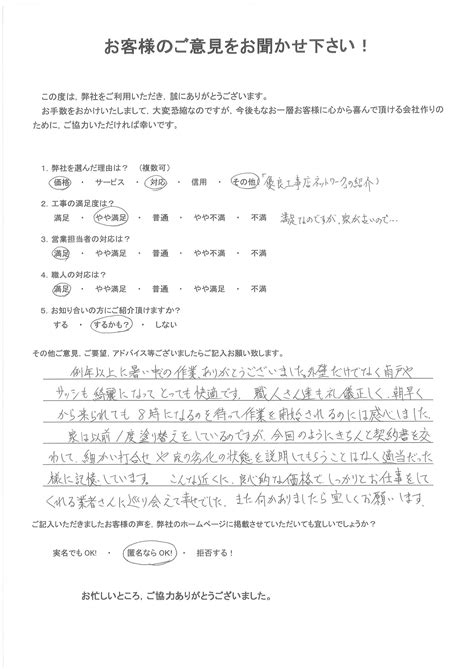 お客様のご意見をお聞かせ下さい！
この度は，弊社をご利用いただき，誠にありがとうございます。
お手数をおかけいたしまして，大変恐縮なのですが，今後もなお一層お客様に心から喜んで頂ける会社作りの
ために，ご協力いただければ幸いです。
1．弊社を選んだ理由は？　（複数可）
価格　・　サービス　・　対応　・　信用　・　その他（優良工事店ネットワークの紹介）
2．工事の満足度は？
満足　・　やや満足　・　普通　・　やや不満　・　不満　満足なのですが、家が古いので…
3．営業担当者の対応は？
満足　・　やや満足　・　普通　・　やや不満　・　不満
4．職人の対応は？
満足　・　やや満足　・　普通　・　やや不満　・　不満
5．お知り合いの方にご紹介頂けますか？
する　・　するかも？　・　しない
その他ご意見，ご要望，アドバイス等ございましたらご記入お願い致します。
例年以上に暑い秋の作業、ありがとうございました。外壁だけでなく雨戸や
サッシも綺麗になってとっても快適です。職人さん達も礼儀正しく、朝早く
から来られても8時になるのを待って作業を開始されるのには感心しました。
家は以前1度塗り替えをしているのですが、今回のようにきちんと契約書を交
わして、細かい打合せや家の劣化の状態を説明してもらうことはなく適当だった
様に記憶しています。こんな近くに、良心的な価格でしっかりとお仕事をして
くれる業者さんに巡り会えて幸せでした。また何かありましたら宜しくお願います。
ご記入いただきましたお客様の声を，弊社のホームページに掲載させていただいても宜しいでしょうか？
実名でもOK！　・　匿名ならOK！　・　拒否する！
お忙しいところ，ご協力ありがとうございました。